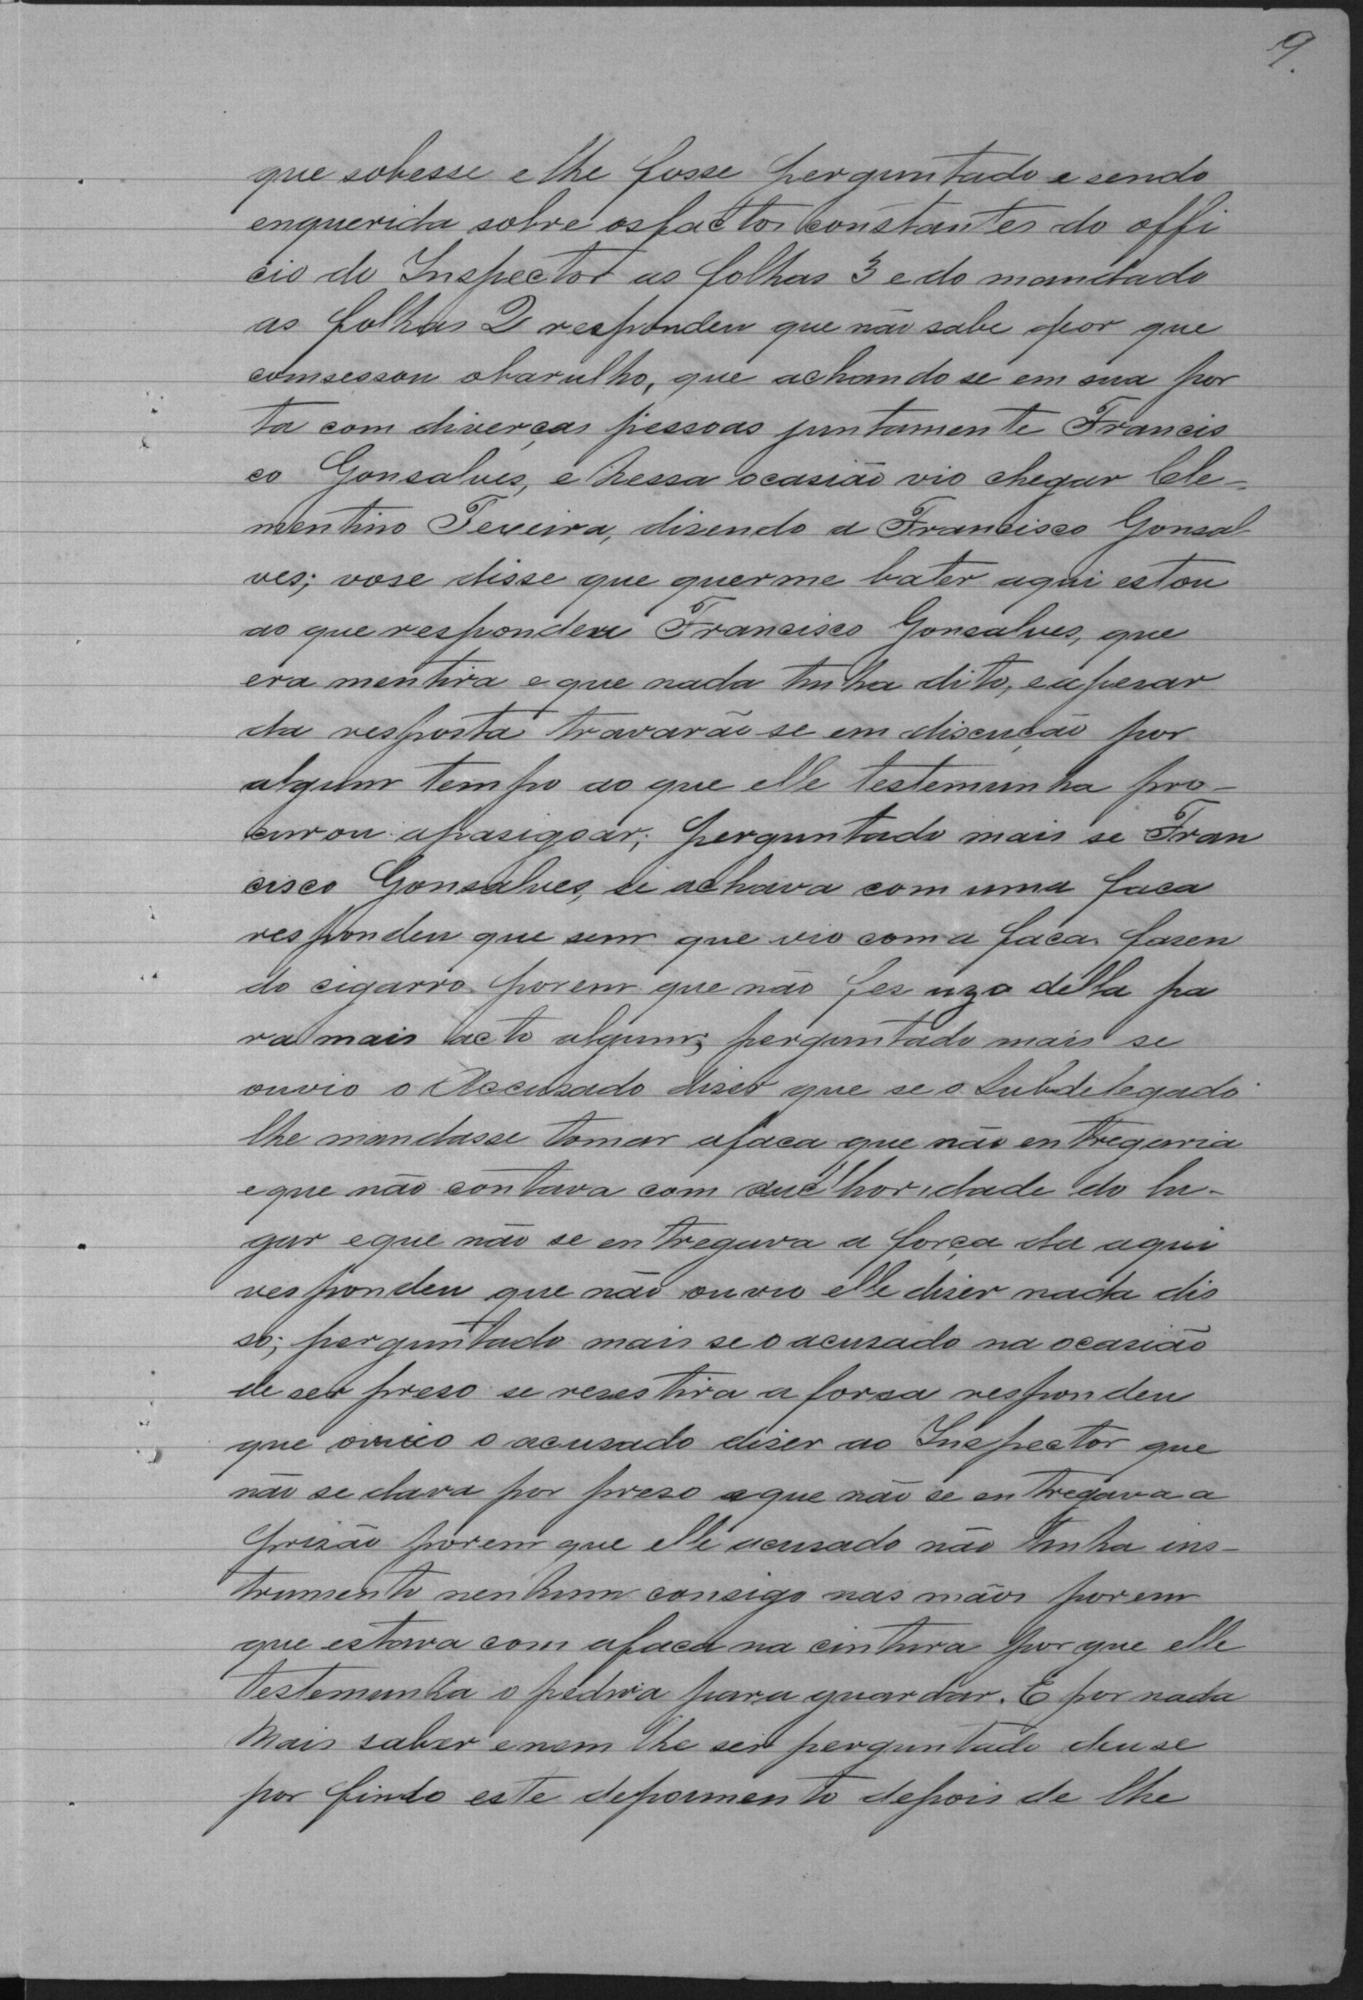 9.
que sobesse e lhe fosse perguntado e sendo
enquerida sobre os factos constantes do offi
cio do Inspector as folhas 3 e do mandado
as folhas 2 respondeu que não sabe por que
comsessou obarulho, que achando se em sua por
ta com diverças pessoas juntamente Francis
co Gonsalves, e nessa ocasião vio chegar Cle-
mentino Teixeira, disendo a Francisco Gonsal
ves; vose disse que quer me bater aqui estou
ao que respondeu Francisco Gonsalves, que
era mentira e que nada tinha dito, e apesar
da resposta travarão se em discução por
algum tempo ao que elle testemunha pro-
curou apasigoar; perguntado mais se Fran
cisco Gonsalves, se achava com uma faca
respondeu que sim que vio com a faca fasen
do cigarro porem que não fes uzo della pa
ra mais acto algum; perguntado mais se
ouvio o Accusado diser que se o Subdelegado
lhe mandasse tomar a faca que não entregaria
e que não contava com authoridade do lu-
gar e que não se entregava a força da aqui
respondeu que não ouvio elle diser nada dis
so; perguntado mais se o acusado na ocasião
de ser preso se resestira a forsa respondeu
que ouvio o acusado diser ao Inspector que
não se dava por preso e que não se entregava a
prizão porem que elle acusado não tinha ins-
trumento nenhum consigo nas mãos porem
que estava com a faca na cintura por que elle
testemunha o pedira para guardar. E por nada
mais saber e nem lhe ser perguntado deu se
por findo este depoimento depois de lhe